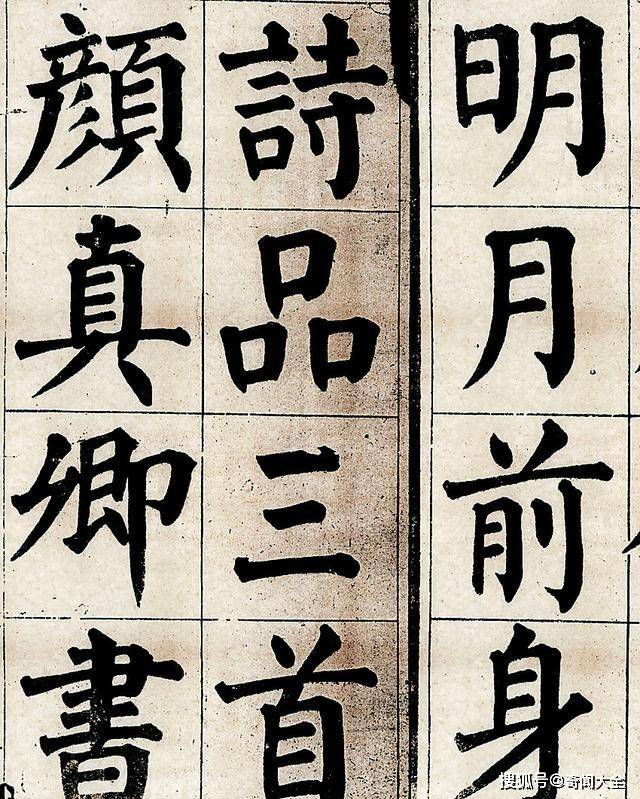 明月前身
詩品三首
顏真卿書
搜狐号@奇闻大全